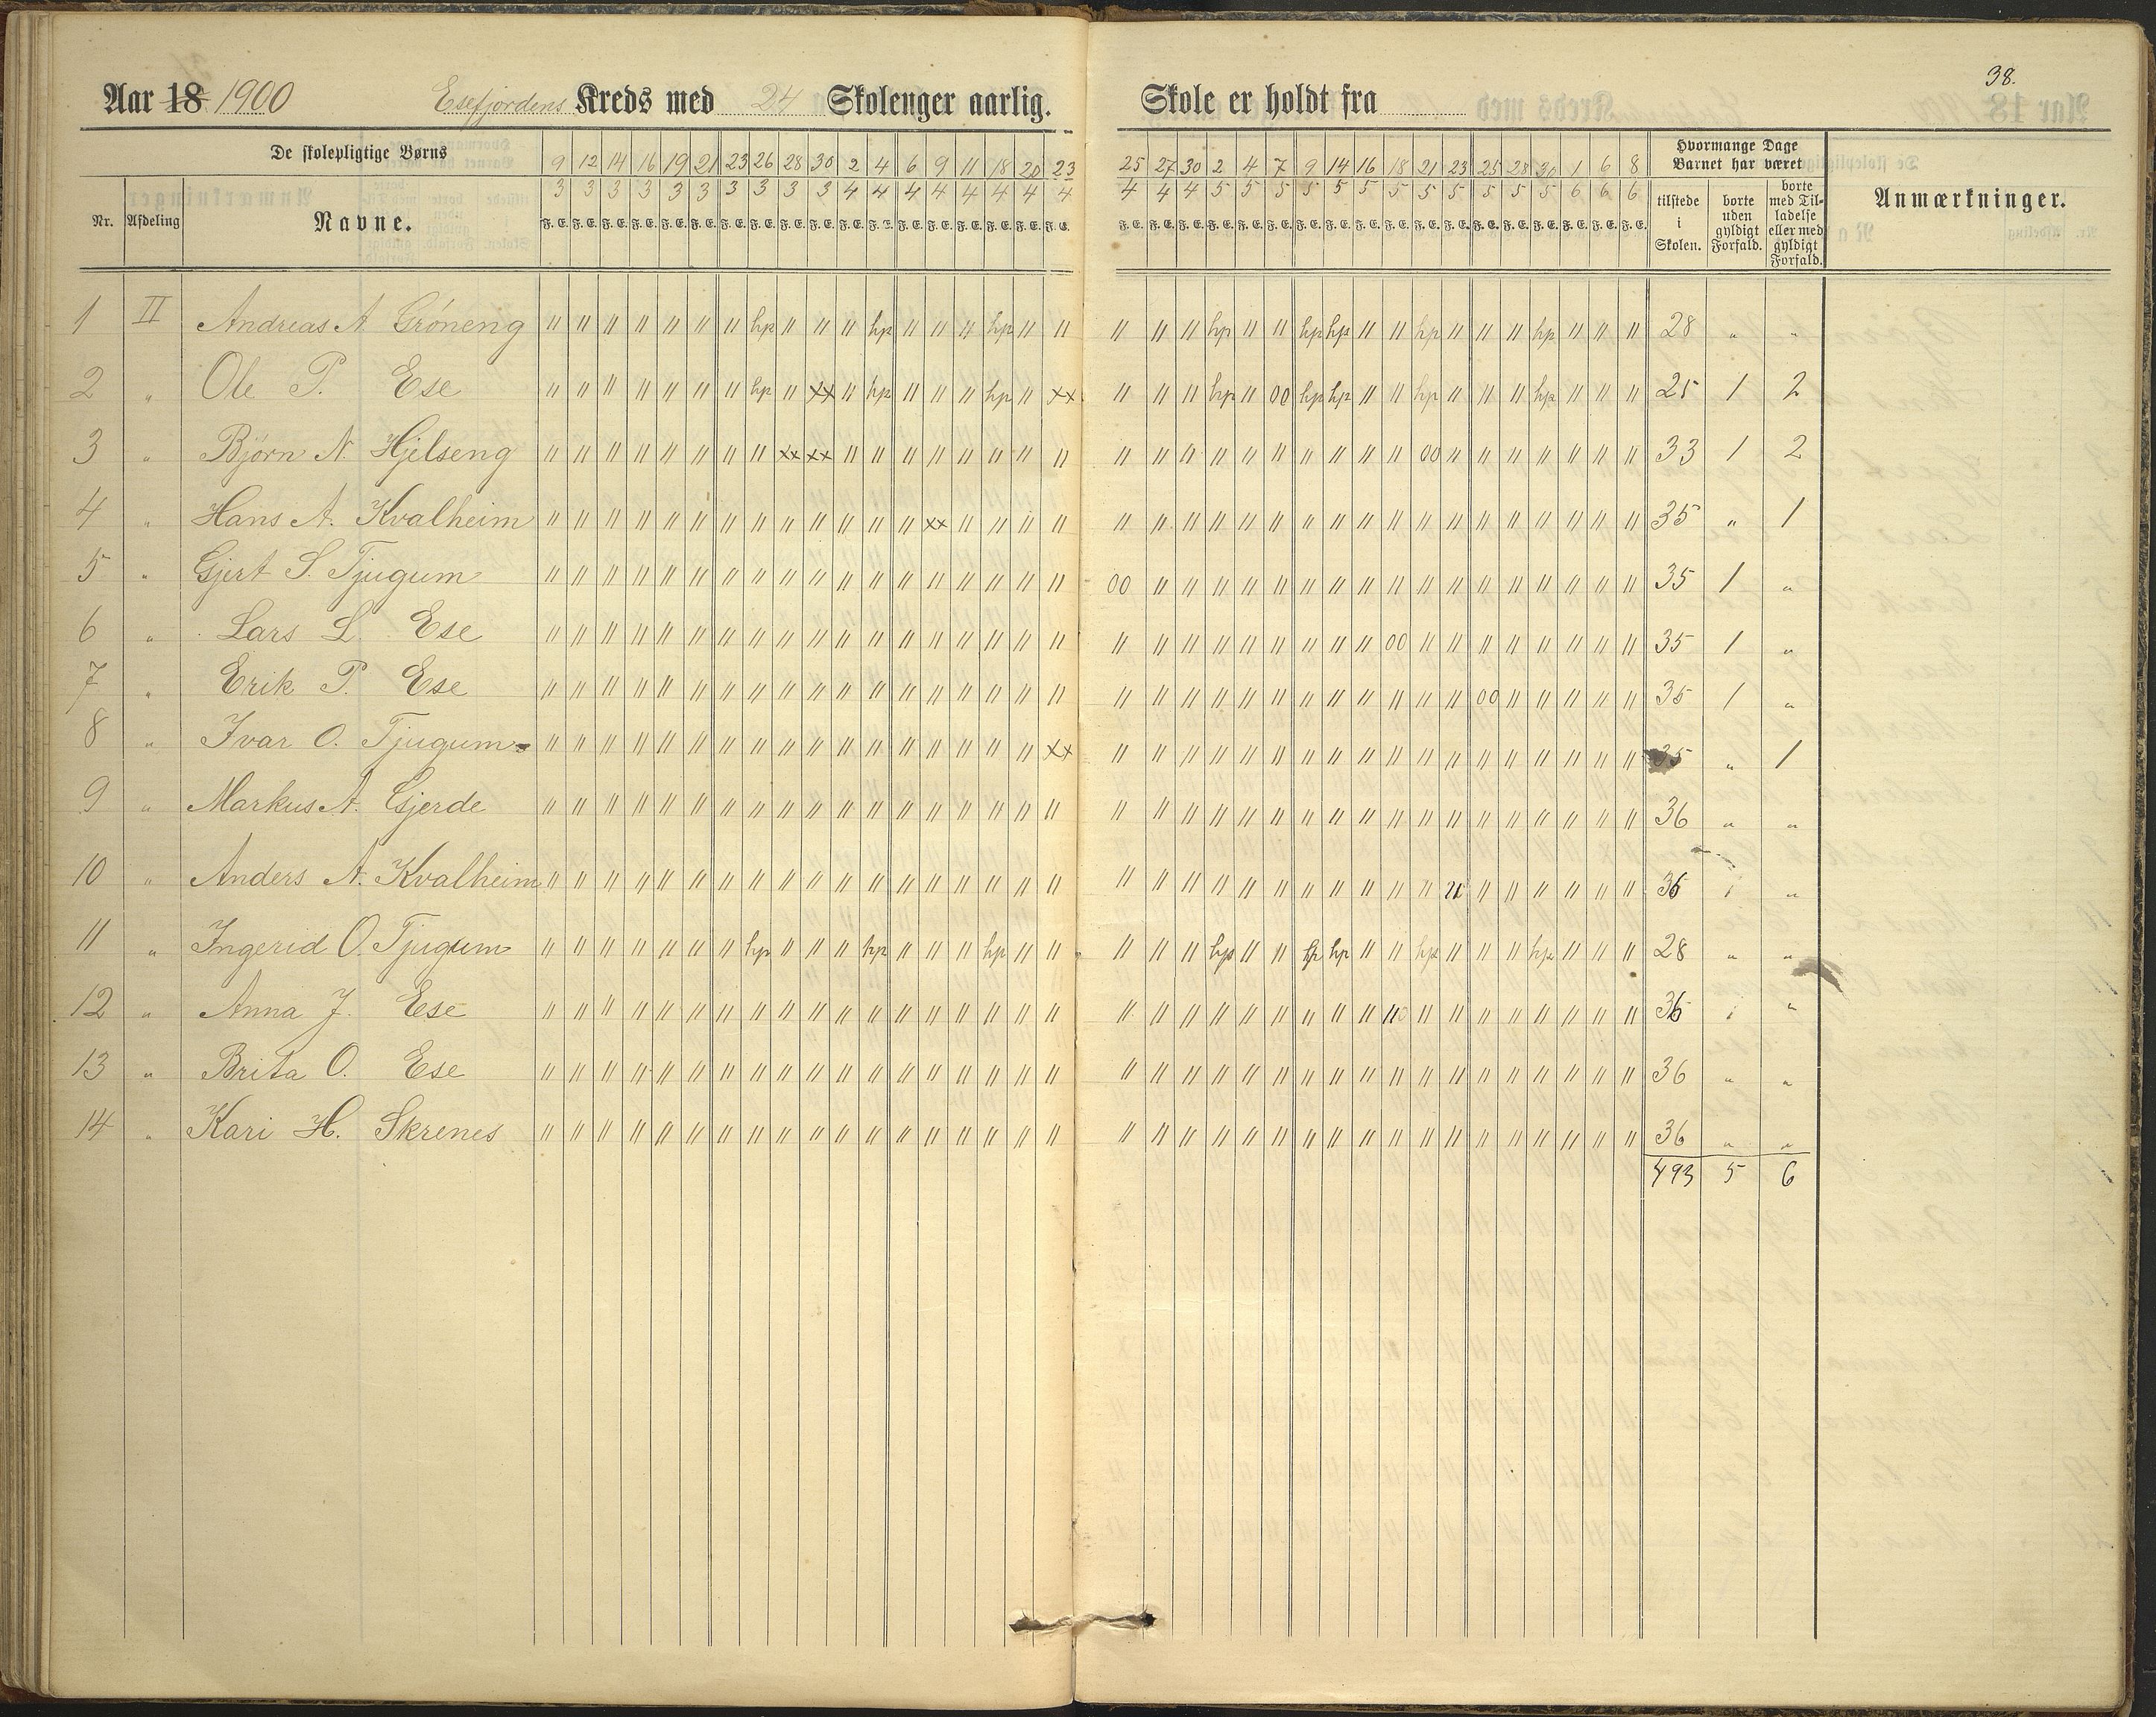 38.
Aar 18 1900 Esefjordens Kreds med 24 Skolenger aarlig. Skole er holdt fra
De skolepligtige Børns 9 12 14 16 19 21 23 26 28 30 2 4 6 9 11 18 20 23 25 27 30 2 4 7 9 14 16 18 21 23 25 28 30 1 6 8 Hvormange Dage Barnet har været
3 3 3 3 3 3 3 3 3 3 4 4 4 4 4 4 4 4 4 4 4 5 5 5 5 5 5 5 5 5 5 5 5 6 6 6
Nr. Afdeling Navne. F. E. F. E. F. E. F. E. F. E. F. E. F. E. F. E. F. E. F. E. F. E. F. E. F. E. F. E. F. E. F. E. F. E. F. E. F. E. F. E. F. E. F. E. F. E. F. E. F. E. F. E. F. E. F. E. F. E. F. E. F. E. F. E. F. E. F. E. F. E. F. E. tilstede i Skolen. borte uden gyldigt Forfald. borte med Tilladelse eller med gyldigt Forfald. Anmærkninger.
1 II Andreas A. Gróneng " " " " " " " hp " " " hp " " " hp " " " " " hp " " hp hp " " hp " " " hp " " " 28 " "
2 " Ole P. Ese " " " " " " " hp " xx " hp " " " hp " xx " " " hp " 00 hp hp " " hp " " " hp " " " 25 1 2
3 " Bjørn N. Hjelseng " " " " " " " " xx xx " " " " " " " " " " " " " " " " " " 00 " " " " " " " 33 1 2
4 " Hans A. Kvalheim " " " " " " " " " " " " " xx " " " " " " " " " " " " " " " " " " " " " " 35 " 1
5 " Gjert S. Tjugum " " " " " " " " " " " " " " " " " " 00 " " " " " " " " " " " " " " " " " 35 1 "
6 " Lars L. Ese " " " " " " " " " " " " " " " " " " " " " " " " " " " 00 " " " " " " " " 35 1 "
7 " Erik P. Ese " " " " " " " " " " " " " " " " " " " " " " " " " " " " " " 00 " " " " " 35 1 "
8 " Ivar O. Tjugum " " " " " " " " " " " " " " " " " xx " " " " " " " " " " " " " " " " " " 35 " 1
9 " Markus A. Gjerde " " " " " " " " " " " " " " " " " " " " " " " " " " " " " " " " " " " " 36 " "
10 " Anders A. Kvalheim " " " " " " " " " " " " " " " " " " " " " " " " " " " " " " " " " " " " 36 "
11 " Ingerid O. Tjugum " " " " " " " hp " " " hp " " " hp " " " " " hp " " hp hp " " hp " " " hp " " " 28 " "
12 " Anna J. Ese " " " " " " " " " " " " " " " " " " " " " " " " " " " " " " " " " " " " 36 "
13 " Brita O. Ese " " " " " " " " " " " " " " " " " " " " " " " " " " " " " " " " " " " " 36 " "
14 " Kari H. Skrenes " " " " " " " " " " " " " " " " " " " " " " " " " " " " " " " " " " " " 36 " "
493 5 6